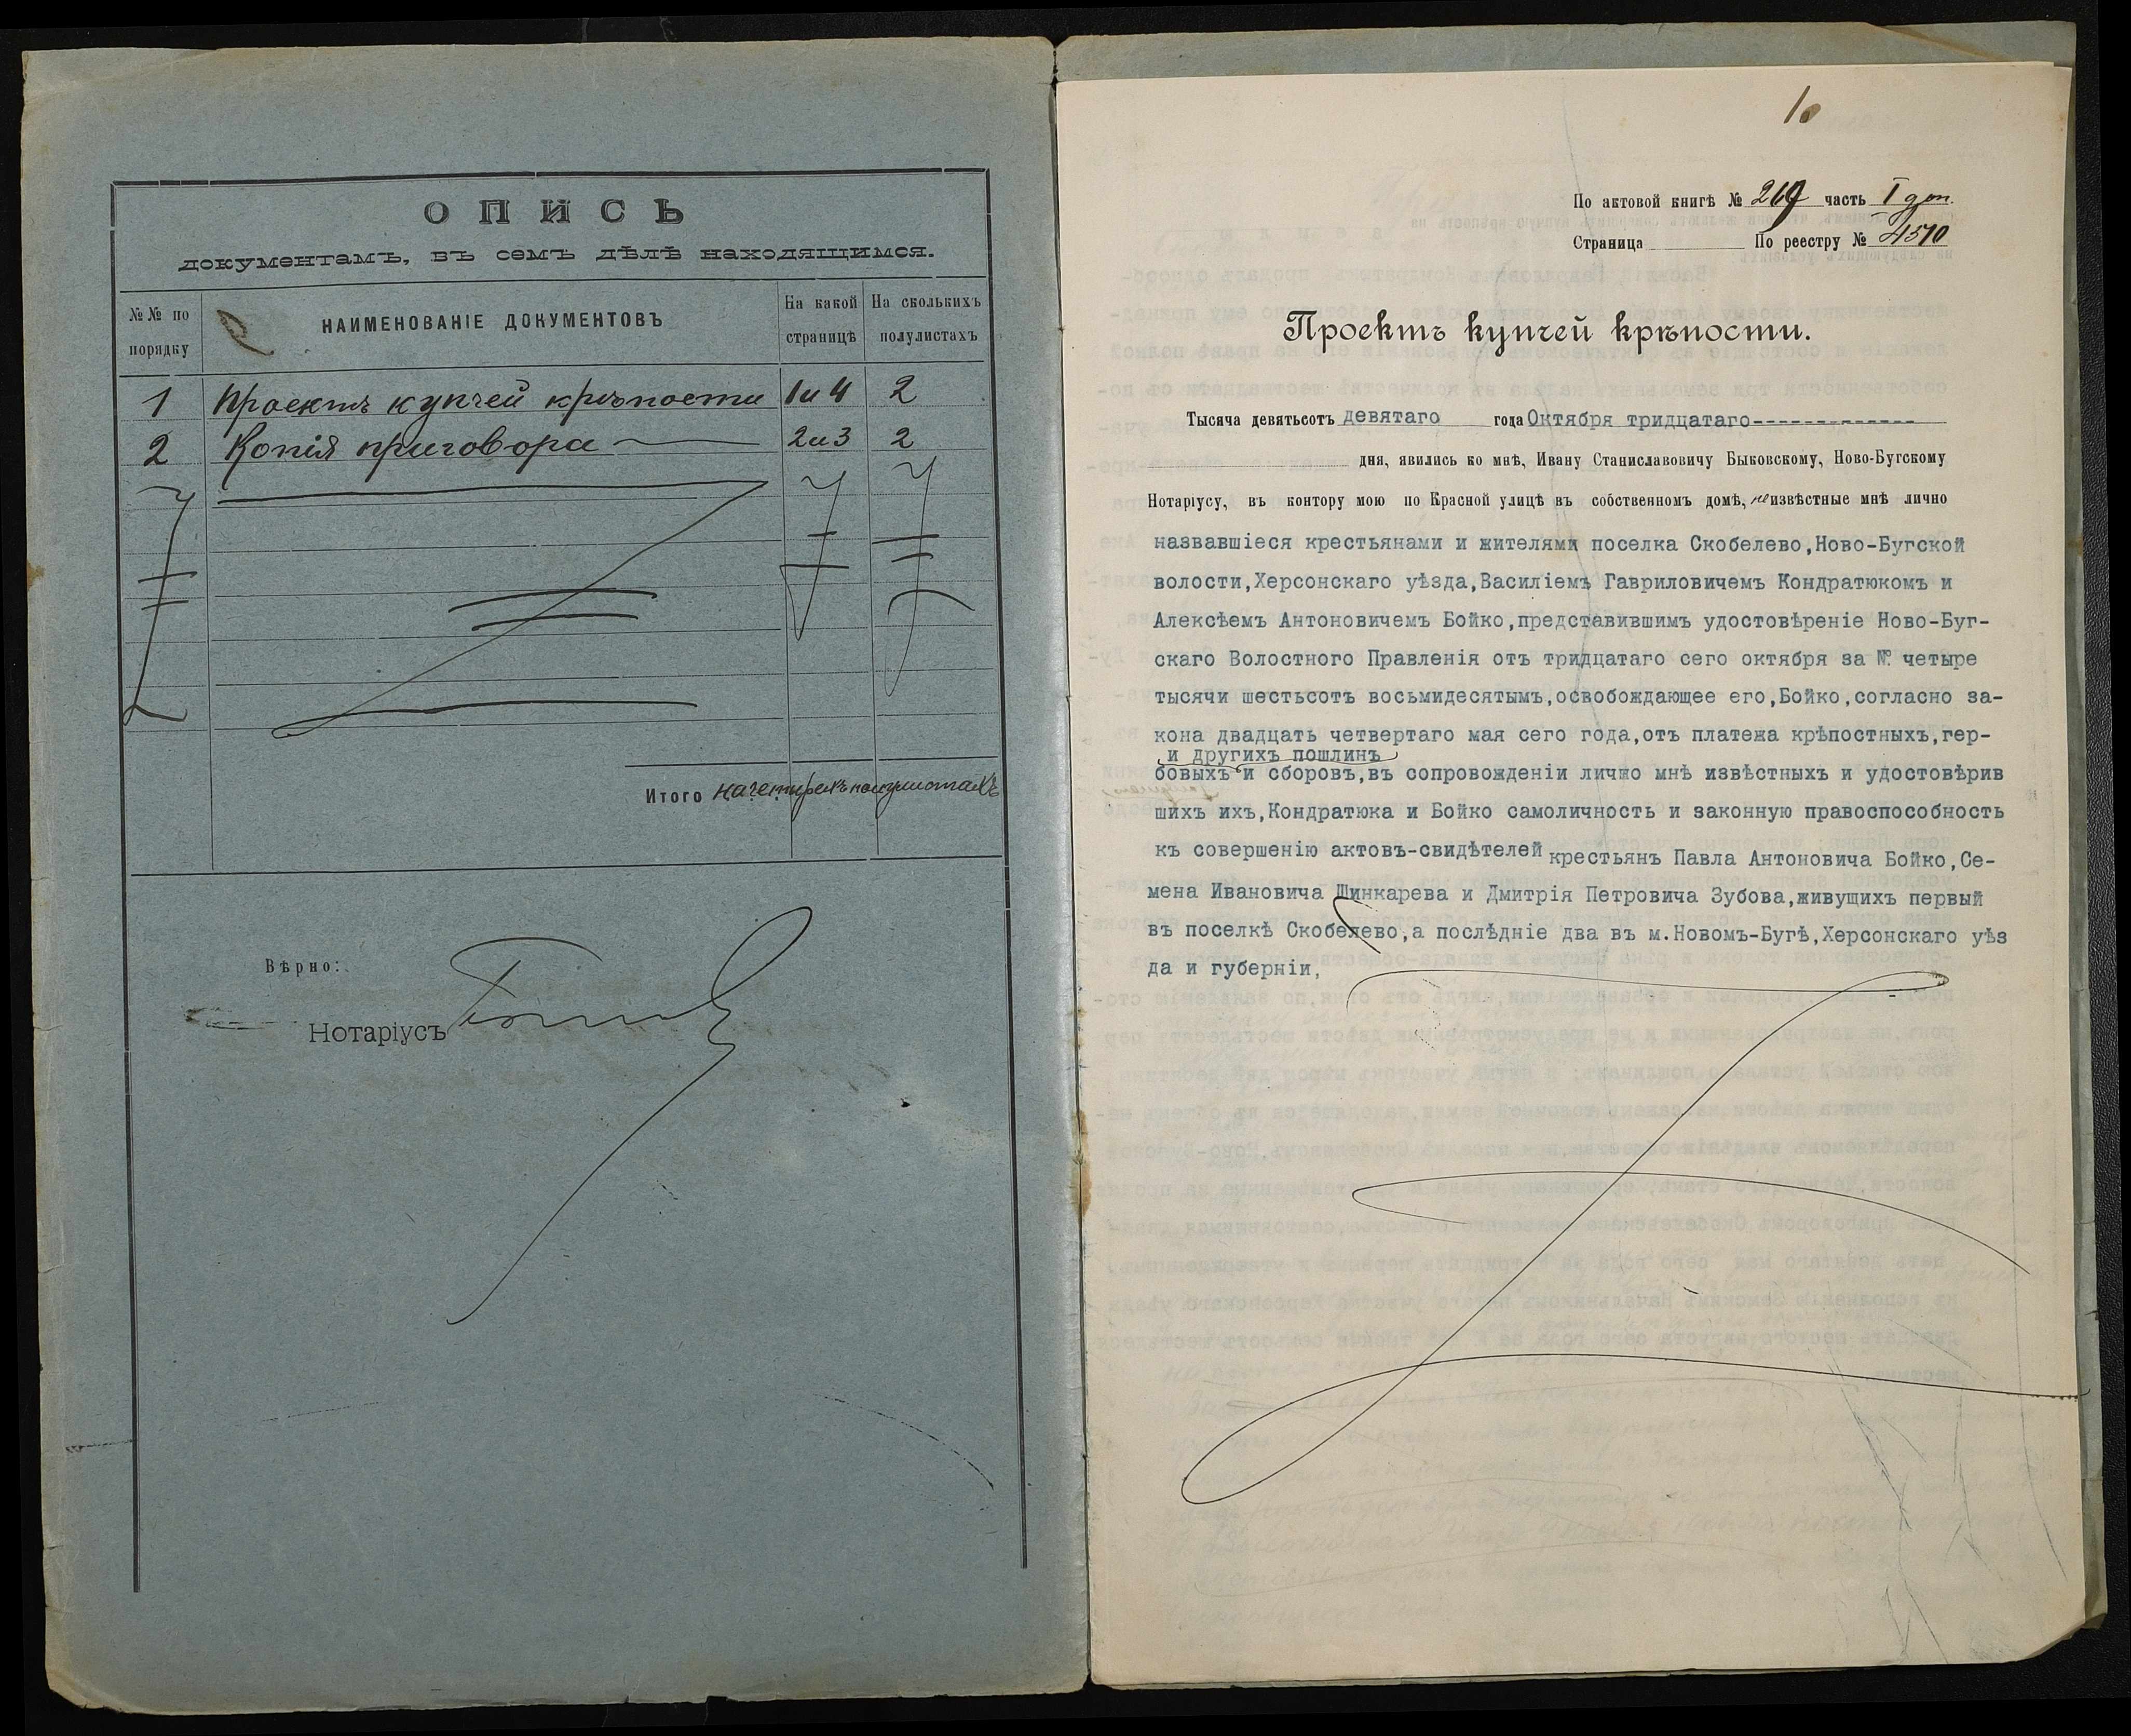 ОПИСЬ
документамъ, въ семъ дѣлѣ находящимся.
№№ по порядку
НАИМЕНОВАНІЕ ДОКУМЕНТОВЪ
На какой страницѣ
На сколькихъ полулистахъ
1 Проектъ купчей крѣпости 1 и 4 2
2 Копія приговора 2 и 3 2
Итого на четырехъ полулистахъ
Вѣрно:
Нотаріусъ
По актовой книгѣ № часть I доп.
Страница По реестру № 4510
Проектъ купчей крѣпости.
Тысяча девятьсотъ девятаго года Октября тридцатаго-------------
дня, явились ко мнѣ, Ивану Станиславовичу Быковскому, Ново-Бугскому
Нотаріусу, въ контору мою по Красной улицѣ въ собственномъ домѣ, неизвѣстные мнѣ лично
назвавшіеся крестьянами и жителями поселка Скобелево,Ново-Бугской
волости,Херсонскаго уѣзда,Василіемъ Гавриловичемъ Кондратюкомъ и
Алексѣемъ Антоновичемъ Бойко,представившимъ удостовѣреніе Ново-Буг-
скаго Волостного Правленія отъ тридцатаго сего октября за № четыре
тысячи шестьсотъ восьмидесятымъ,освобождающее его,Бойко,согласно за-
кона двадцать четвертаго мая сего года,отъ платежа крѣпостныхъ,гер-
и другихъ пошлинъ
бовыхъ и сборовъ,въ сопровожденіи лично мнѣ извѣстныхъ и удостовѣрив
шихъ ихъ,Кондратюка и Бойко самоличность и законную правоспособность
къ совершенію актовъ-свидѣтелей крестьянъ Павла Антоновича Бойко,Се-
мена Ивановича Шинкарева и Дмитрія Петровича Зубова,живущихъ первый
въ поселкѣ Скобелево,а послѣдніе два въ м.Новомъ-Бугѣ,Херсонскаго уѣз
да и губерніи,